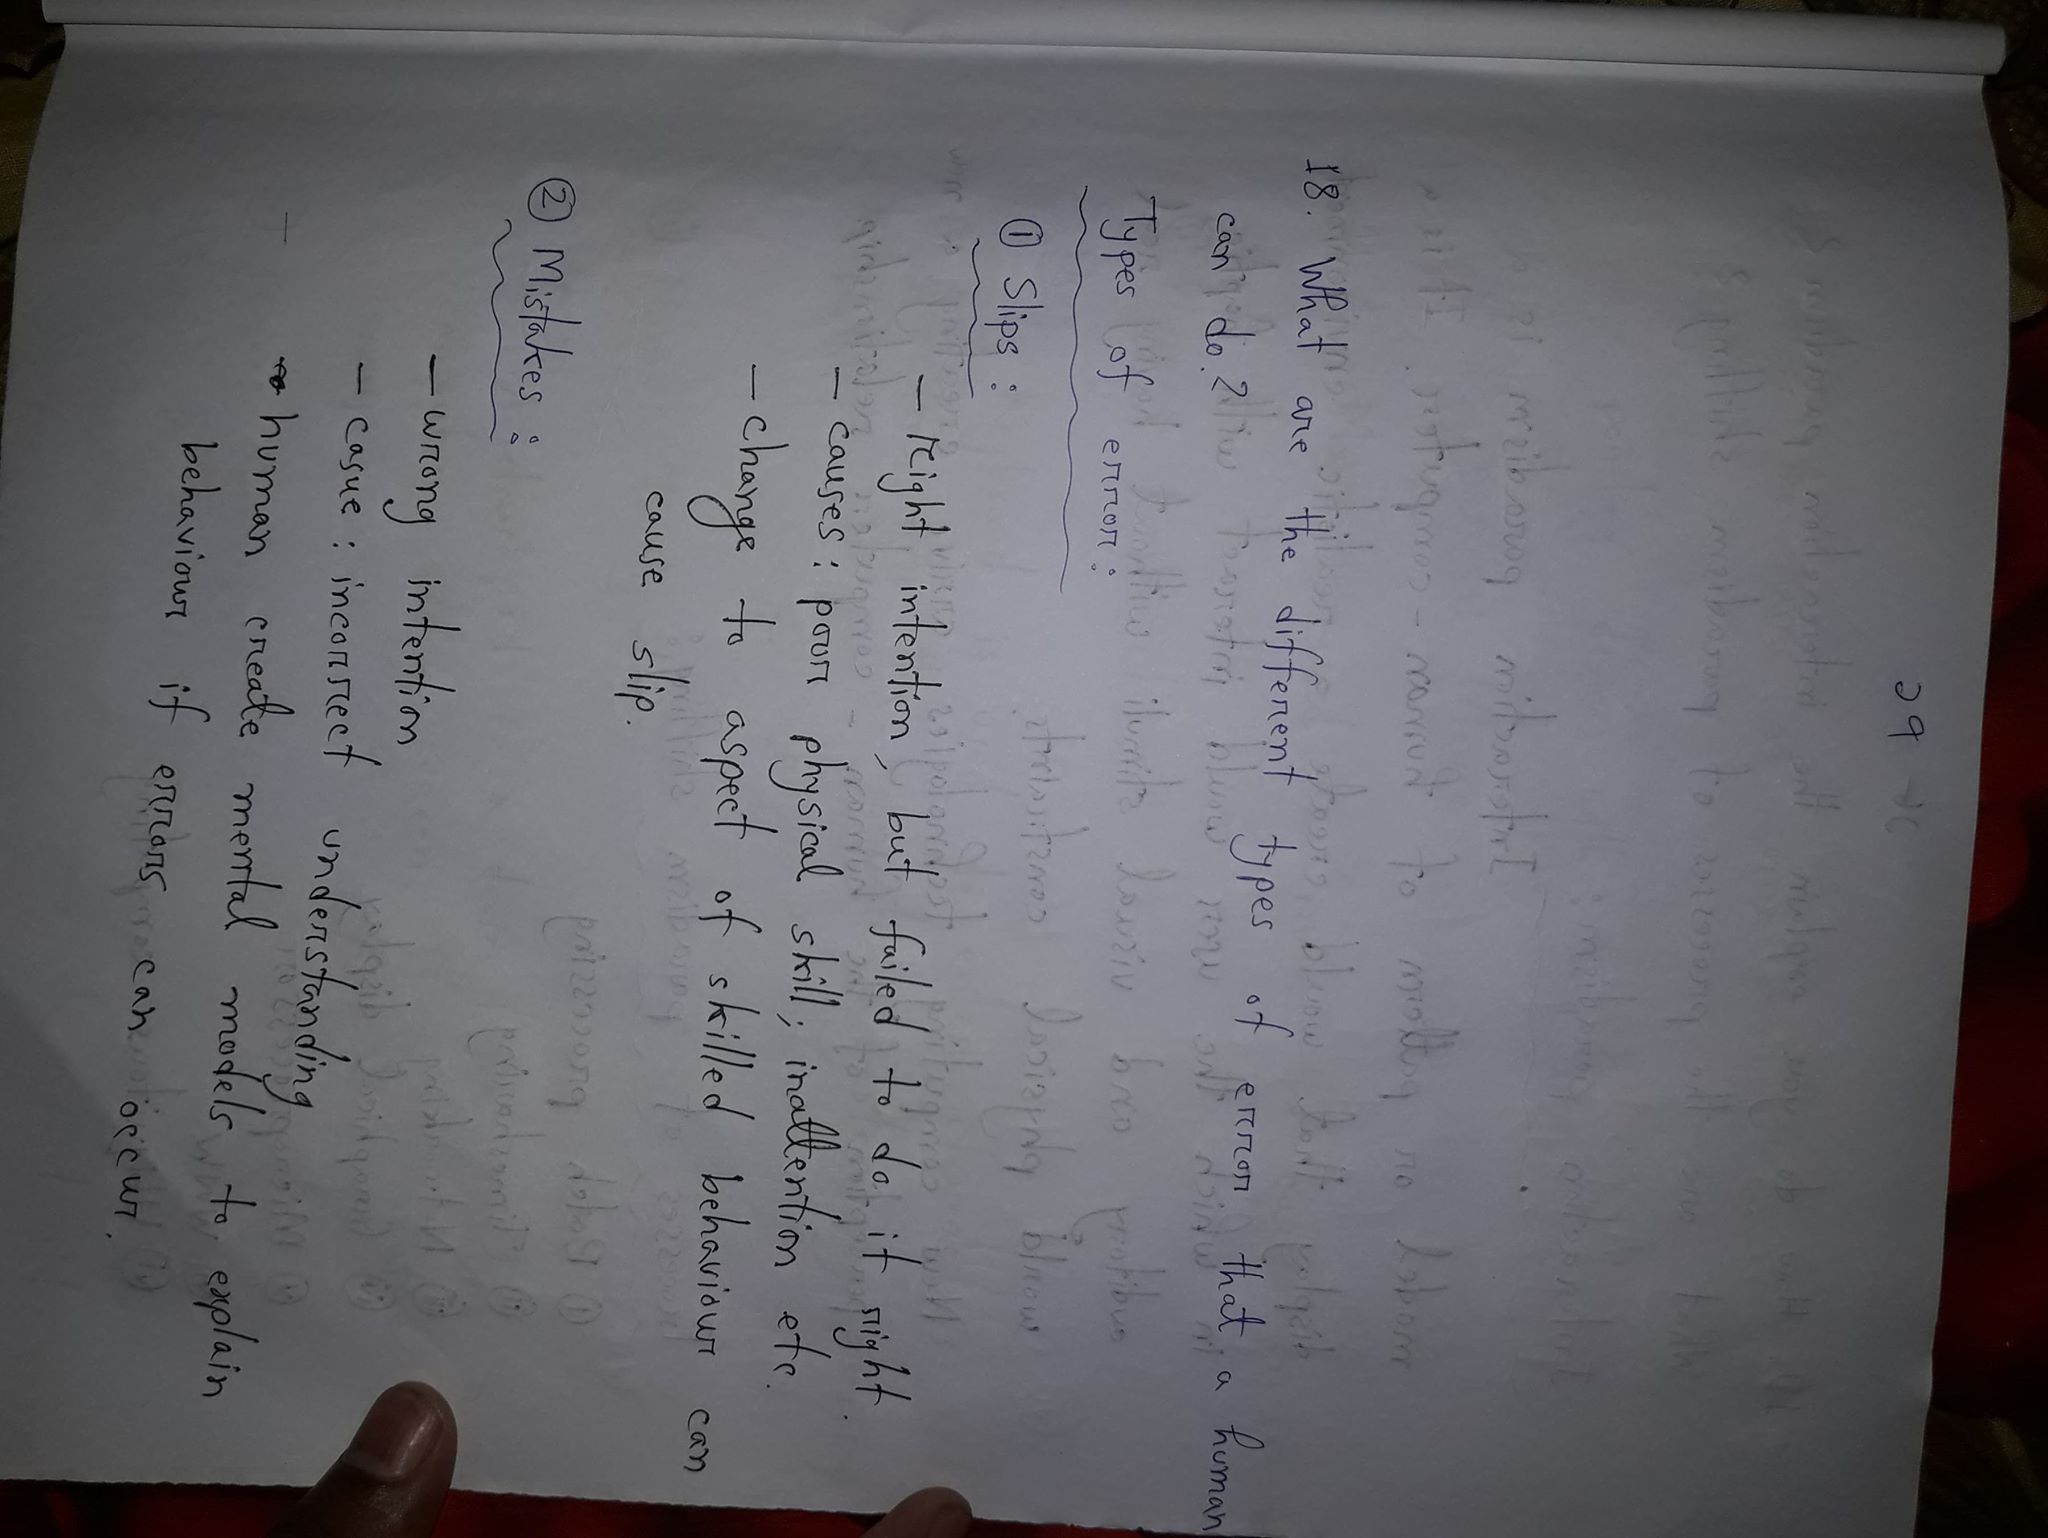 ২৭
18. What are the different types of error that a human
can do?
Types of error:
① Slips:
- Right intention, but failed to do it right.
- causes: poor physical skill, inattention etc.
- change to aspect of skilled behaviour can
cause slip.
② Mistakes:
- wrong intention
- casue: incorrect understanding
human create mental models to explain
behaviour if errors can occur.